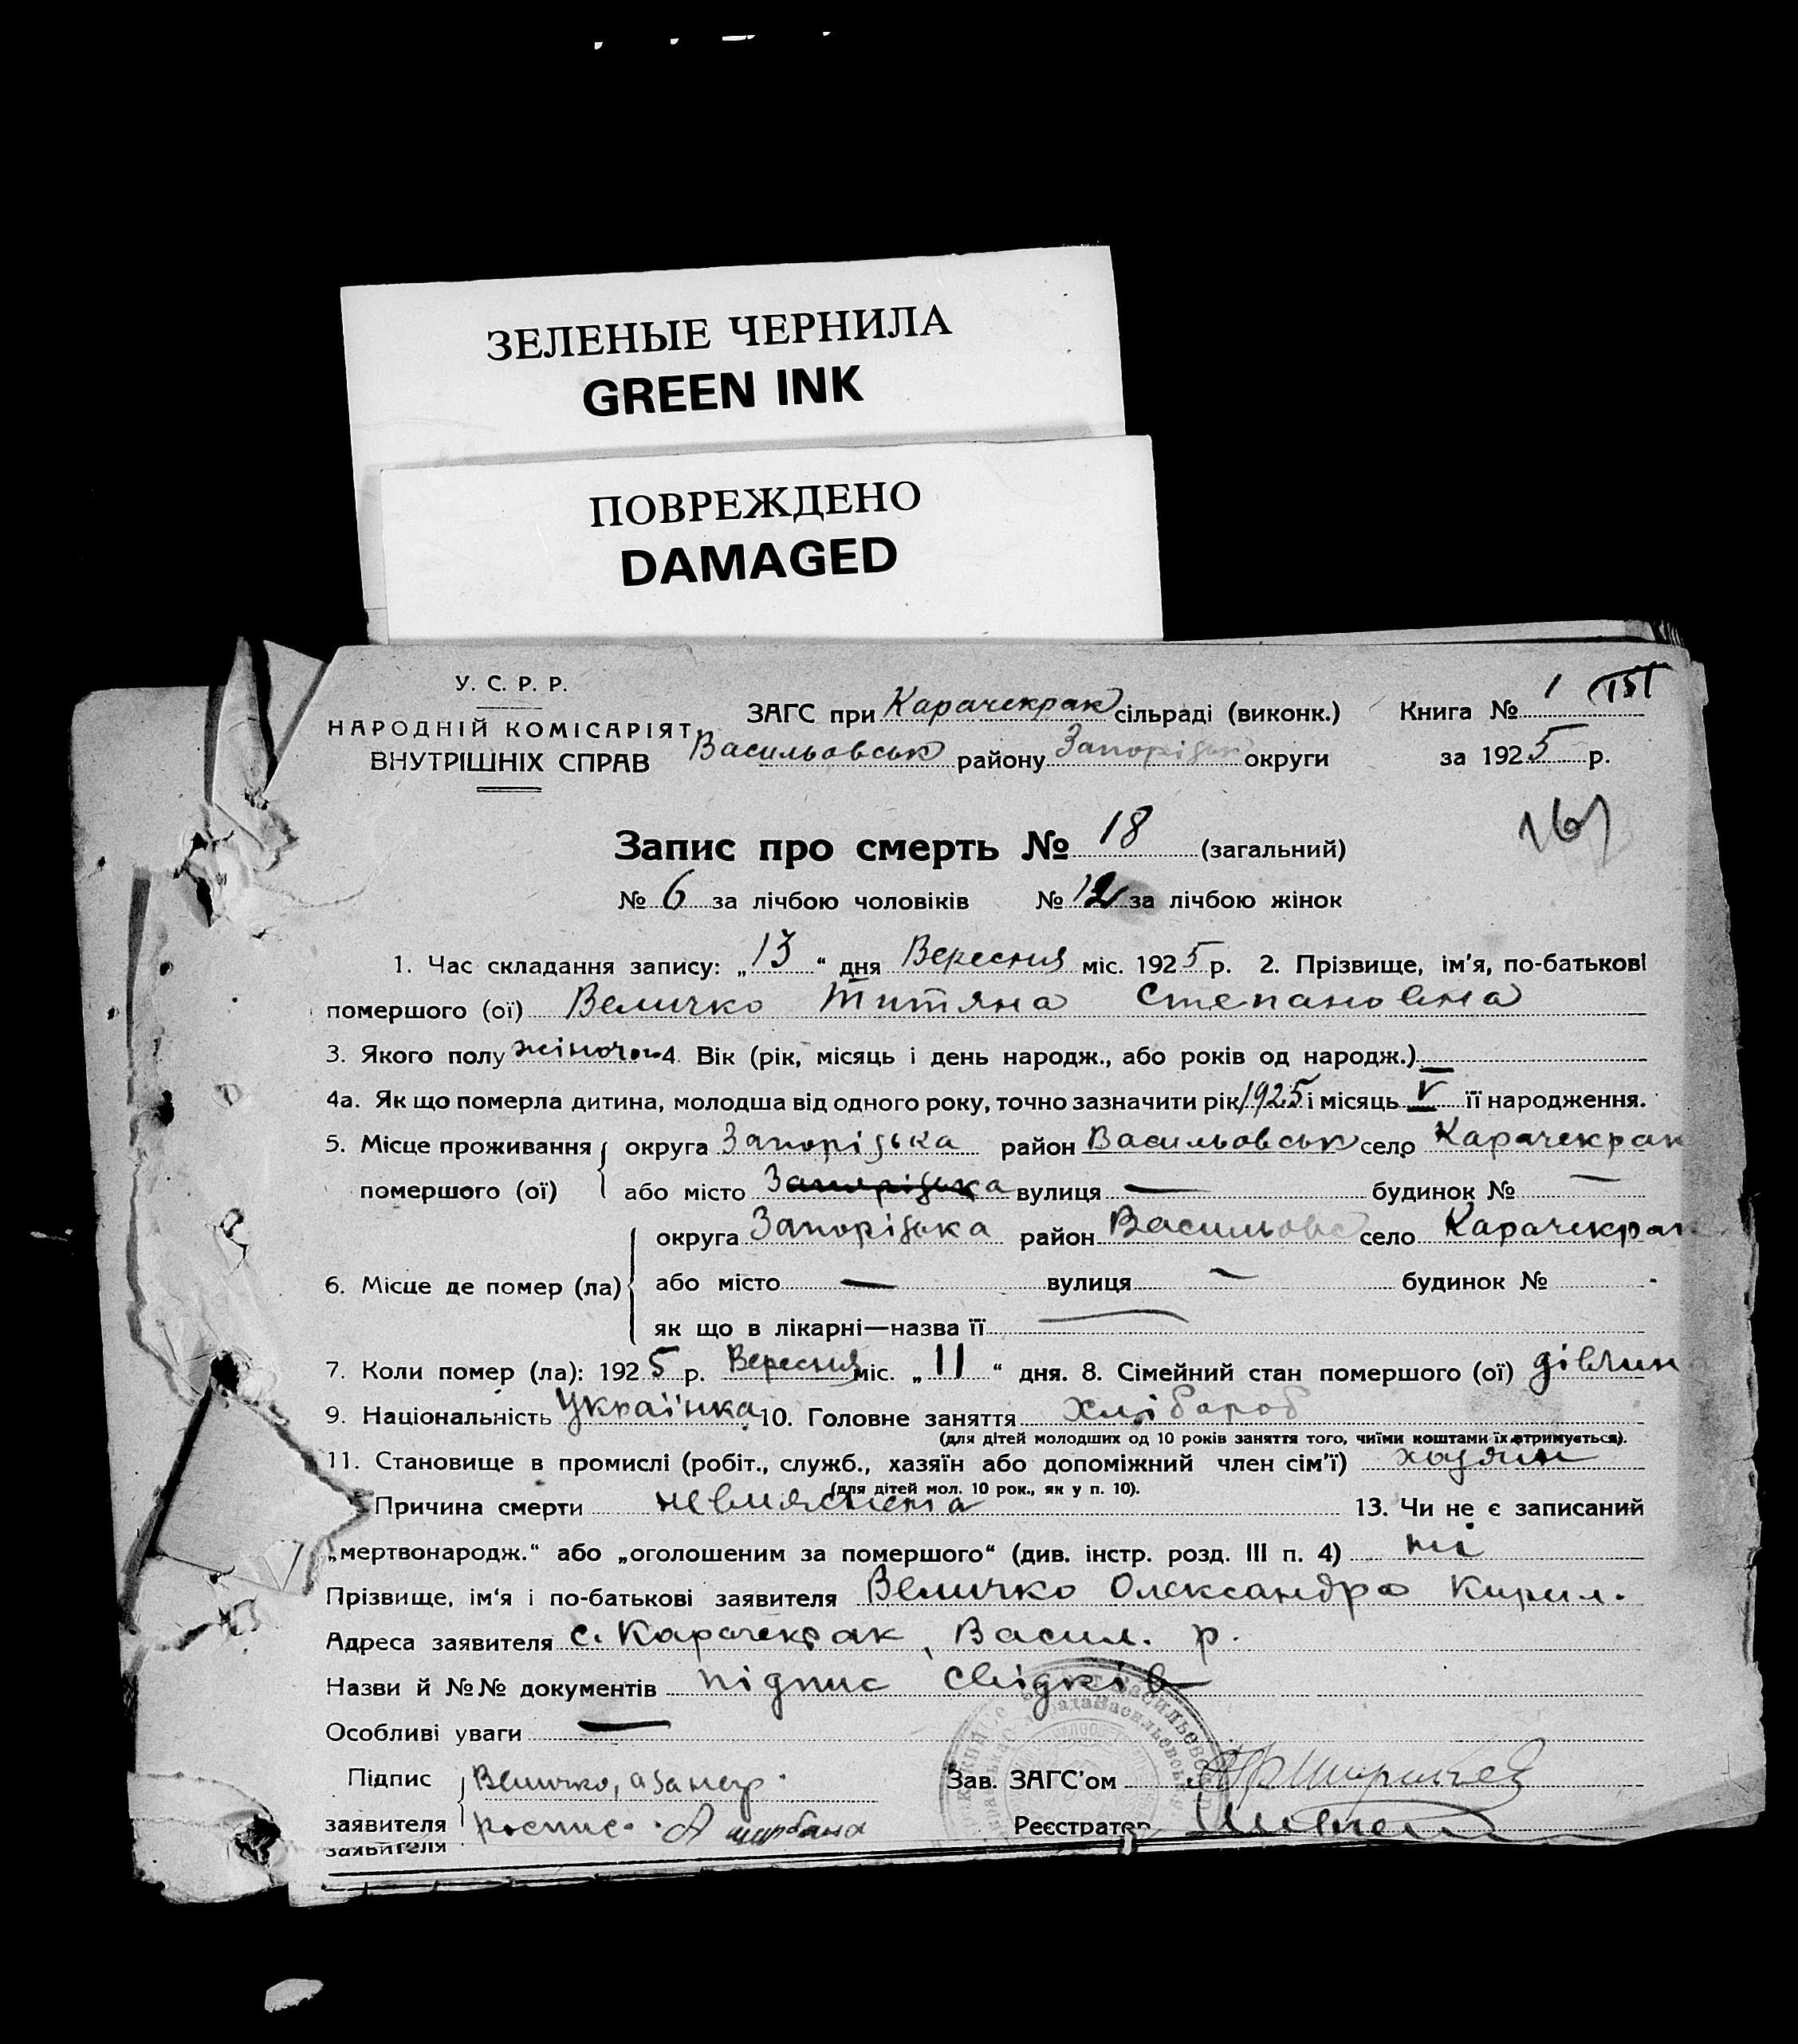 ЗЕЛЕНЫЕ ЧЕРНИЛА
GREEN INK
ПОВРЕЖДЕНО
DAMAGED
У. С. Р. Р.
НАРОДНІЙ КОМІСАРІЯТ
ВНУТРІШНІХ СПРАВ
ЗАГС при Карачекрак сільраді (виконк.) Книга № 1
Васильовськ району Запорізьк округи за 1925 р.
161
Запис про смерть № 18 (загальний)
№ 6 за лічбою чоловіків № 12 за лічбою жінок
1. Час складання запису: „13“ дня Вересня міс. 1925 р. 2. Прізвище, ім'я, по-батькові
помершого (ої) Величко Титяна Степановна
3. Якого полу жіночого 4. Вік (рік, місяць і день народж., або років од народж.)
4а. Як що померла дитина, молодша від одного року, точно зазначити рік 1925 і місяць V її народження.
5. Місце проживання помершого (ої) округа Запорізька район Васильовськ село Карачекрак
або місто Запорізька вулиця — будинок № —
6. Місце де помер (ла) округа Запорізька район Васильовс село Карачекрак
або місто — вулиця — будинок № -
як що в лікарні—назва її —
7. Коли помер (ла): 1925 р. Вересня міс. „11“ дня. 8. Сімейний стан помершого (ої) дівчин
9. Національність Українка 10. Головне заняття хлібороб
(для дітей молодших од 10 років заняття того, чиїми коштами їх отримується).
11. Становище в промислі (робіт., служб., хазяїн або допоміжний член сім'ї) хозяін
(для дітей мол. 10 рок., як у п. 10).
Причина смерти невияснена 13. Чи не є записаний
„мертвонародж.“ або „оголошеним за помершого“ (див. інстр. розд. III п. 4) ні
Прізвище, ім'я і по-батькові заявителя Величко Олександра Кирил.
Адреса заявителя с. Карачекрак, Васил. р.
Назви й №№ документів підпис свідків
Особливі уваги —
Підпис заявителя Величко, а за негр.
роспис. А щербана
Зав. ЗАГС'ом
Реєстратер
заявителя